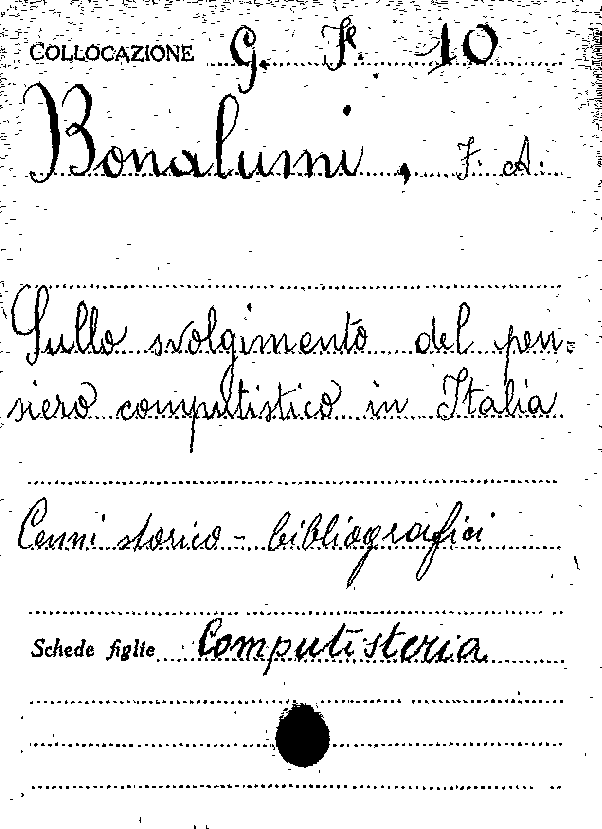 COLLOCAZIONE G. K. 10
Bonalumi, F. A.
Sullo svolgimento del pen-
siero computistico in Italia
Cenni storico-bibliografici
Schede figlie Computisteria